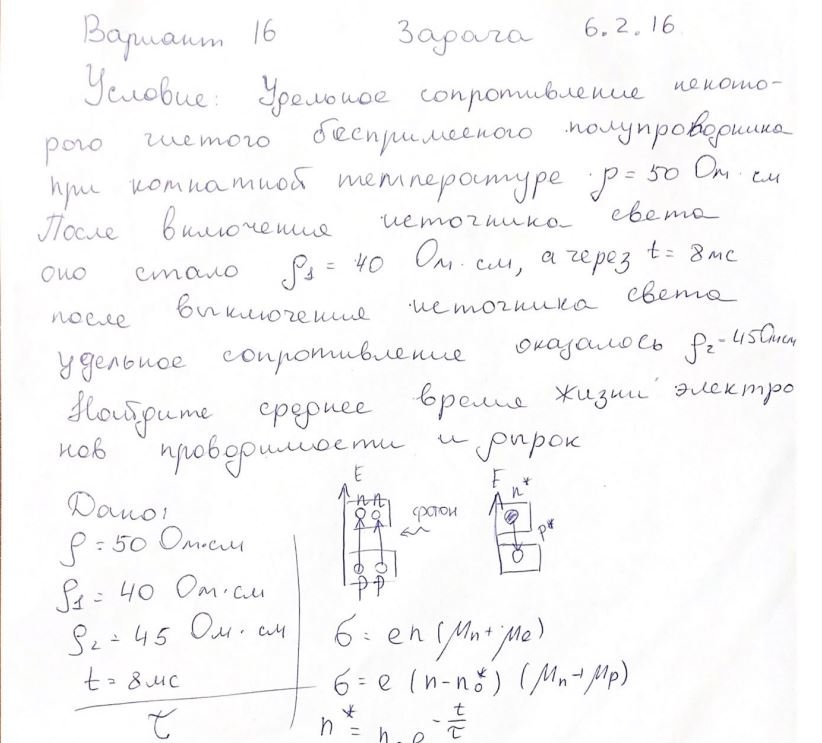 Вариант 16 Задача 6.2.16.
Условие: Удельное сопротивление некото-
рого чистого беспримесного полупроводника
при комнатной температуре ρ = 50 Ом·см
После включения источника света
оно стало ρ₁ = 40 Ом·см, а через t = 8мс
после выключения источника света
удельное сопротивление оказалось ρ₂ = 45 Ом·см
Найдите среднее время жизни электро
нов проводимости и дырок
Дано:
ρ = 50 Ом·см
ρ₁ = 40 Ом·см
ρ₂ = 45 Ом·см
t = 8мс
τ
E
n n
фотон
p p
E
n*
p*
σ = en (μn + μe)
σ = e (n - n₀*) (μn + μp)
n* = n₀ e^(-t/τ)